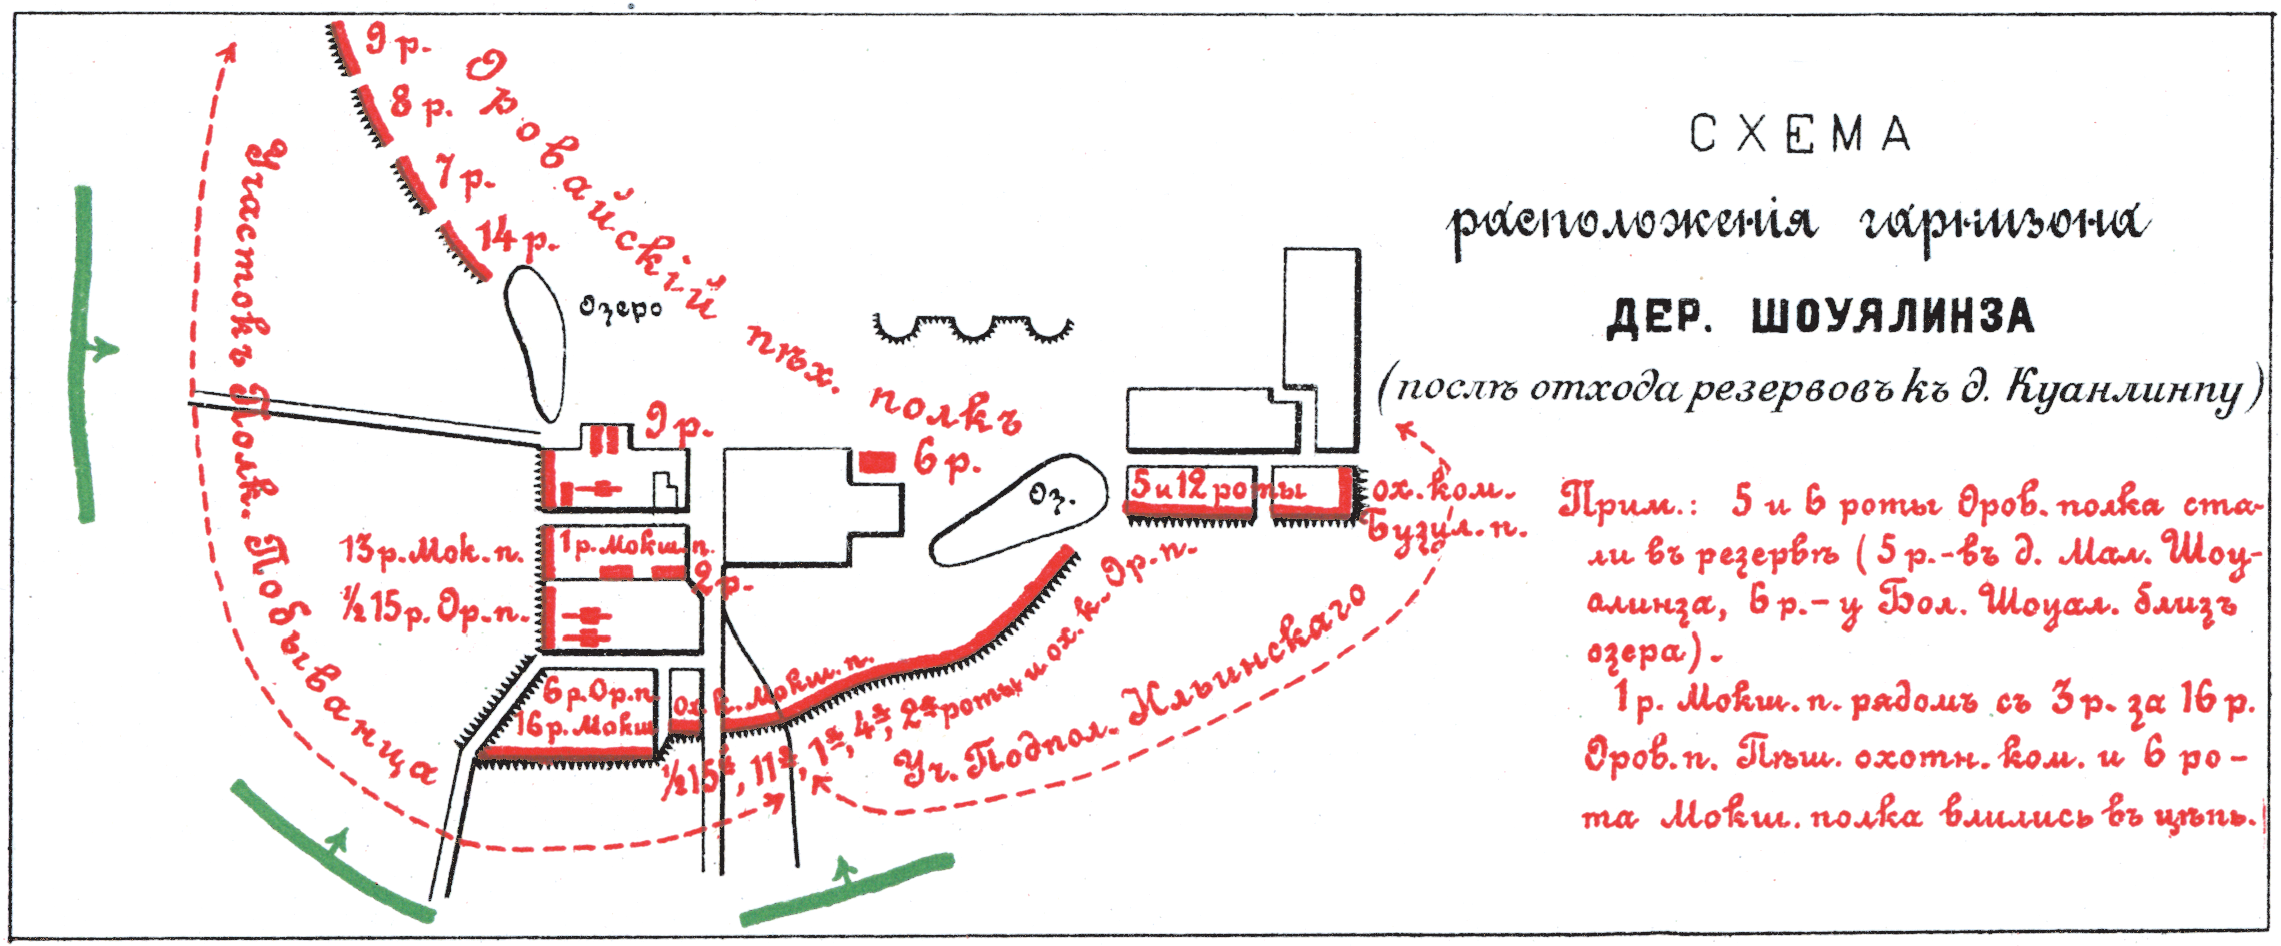 СХЕМА
расположенія гарнизона
ДЕР. ШОУЯЛИНЗА
(послѣ отхода резервовъ къ д. Куанлинпу)
Прим.: 5 и 6 роты Оров. полка ста-
ли въ резервѣ (5 р.-въ д. Мал. Шоу-
алинза, 6 р.- у Бол. Шоуал. близъ
озера).
1 р. Мокш. п. рядомъ съ 3 р. за 16 р.
Оров. п. Пѣш. охотн. ком. и 6 ро-
та Мокш. полка влились въ цѣпь.
9 р.
8 р.
7 р.
14 р.
Оровайскій пѣх. полкъ
Участокъ Полк. Побыванца
Озеро
9 р.
6 р.
Оз.
5 и 12 роты
ох. ком.
Бузул. п.
13 р. Мок. п.
1 р. Мокш. п.
2 р.
½ 15 р. Ор. п.
6 р. Ор. п.
16 р. Мокш
Ох. к. Мокш. п.
½ 15й, 11я, 1я, 4я, 2я роты и ох. к. Ор. п.
Уч. Подпол. Ильинскаго